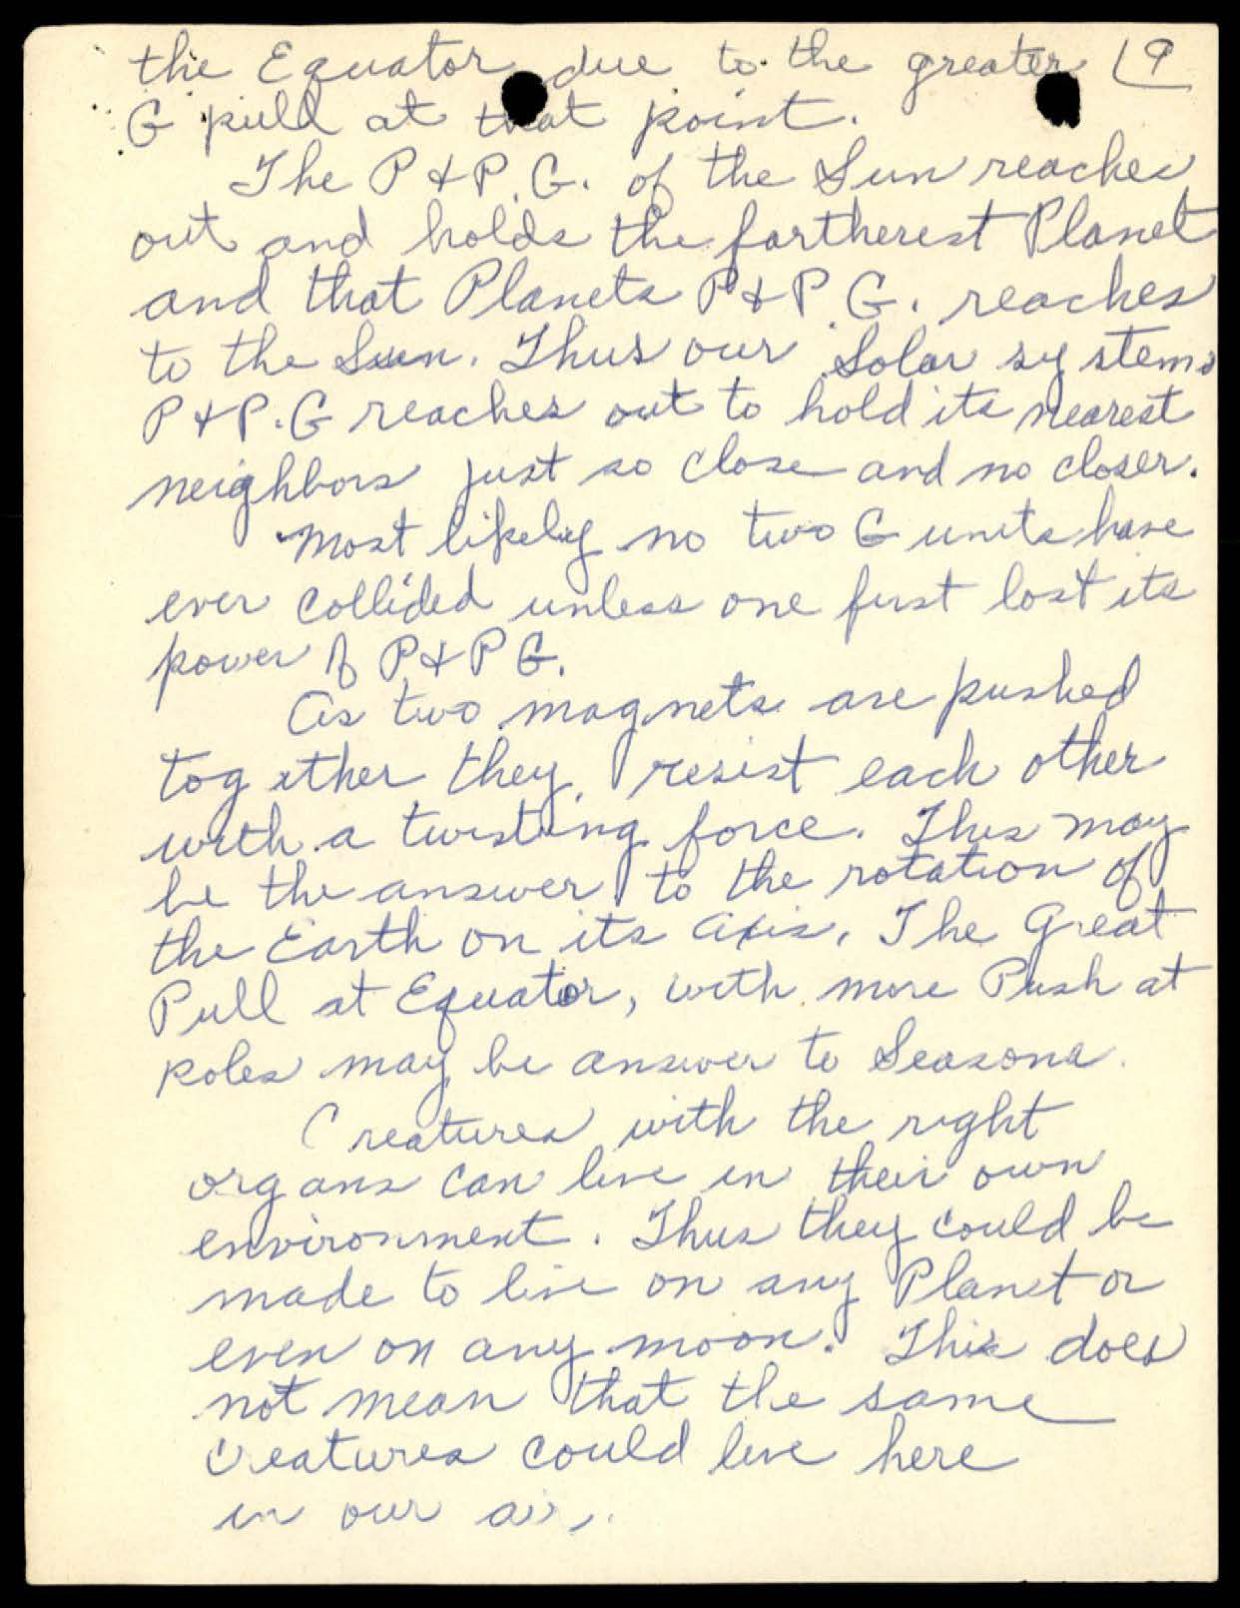 the Equator due to the greater 9
G pull at that point.
The P & P. G. of the Sun reaches
out and holds the fartherest Planet
and that Planets P & P. G. reaches
to the Sun. Thus our Solar systems
P & P. G reaches out to hold its nearest
neighbors just so close and no closer.
Most likely no two G units have
ever collided unless one first lost its
power of P & P G.
As two magnets are pushed
together they resist each other
with a twisting force. This may
be the answer to the rotation of
the Earth on its axis. The Great
Pull at Equator, with more Push at
poles may be answer to Seasons.
Creatures with the right
organs can live in their own
environment. Thus they could be
made to live on any Planet or
even on any moon. This does
not mean that the same
creatures could live here
in our air.